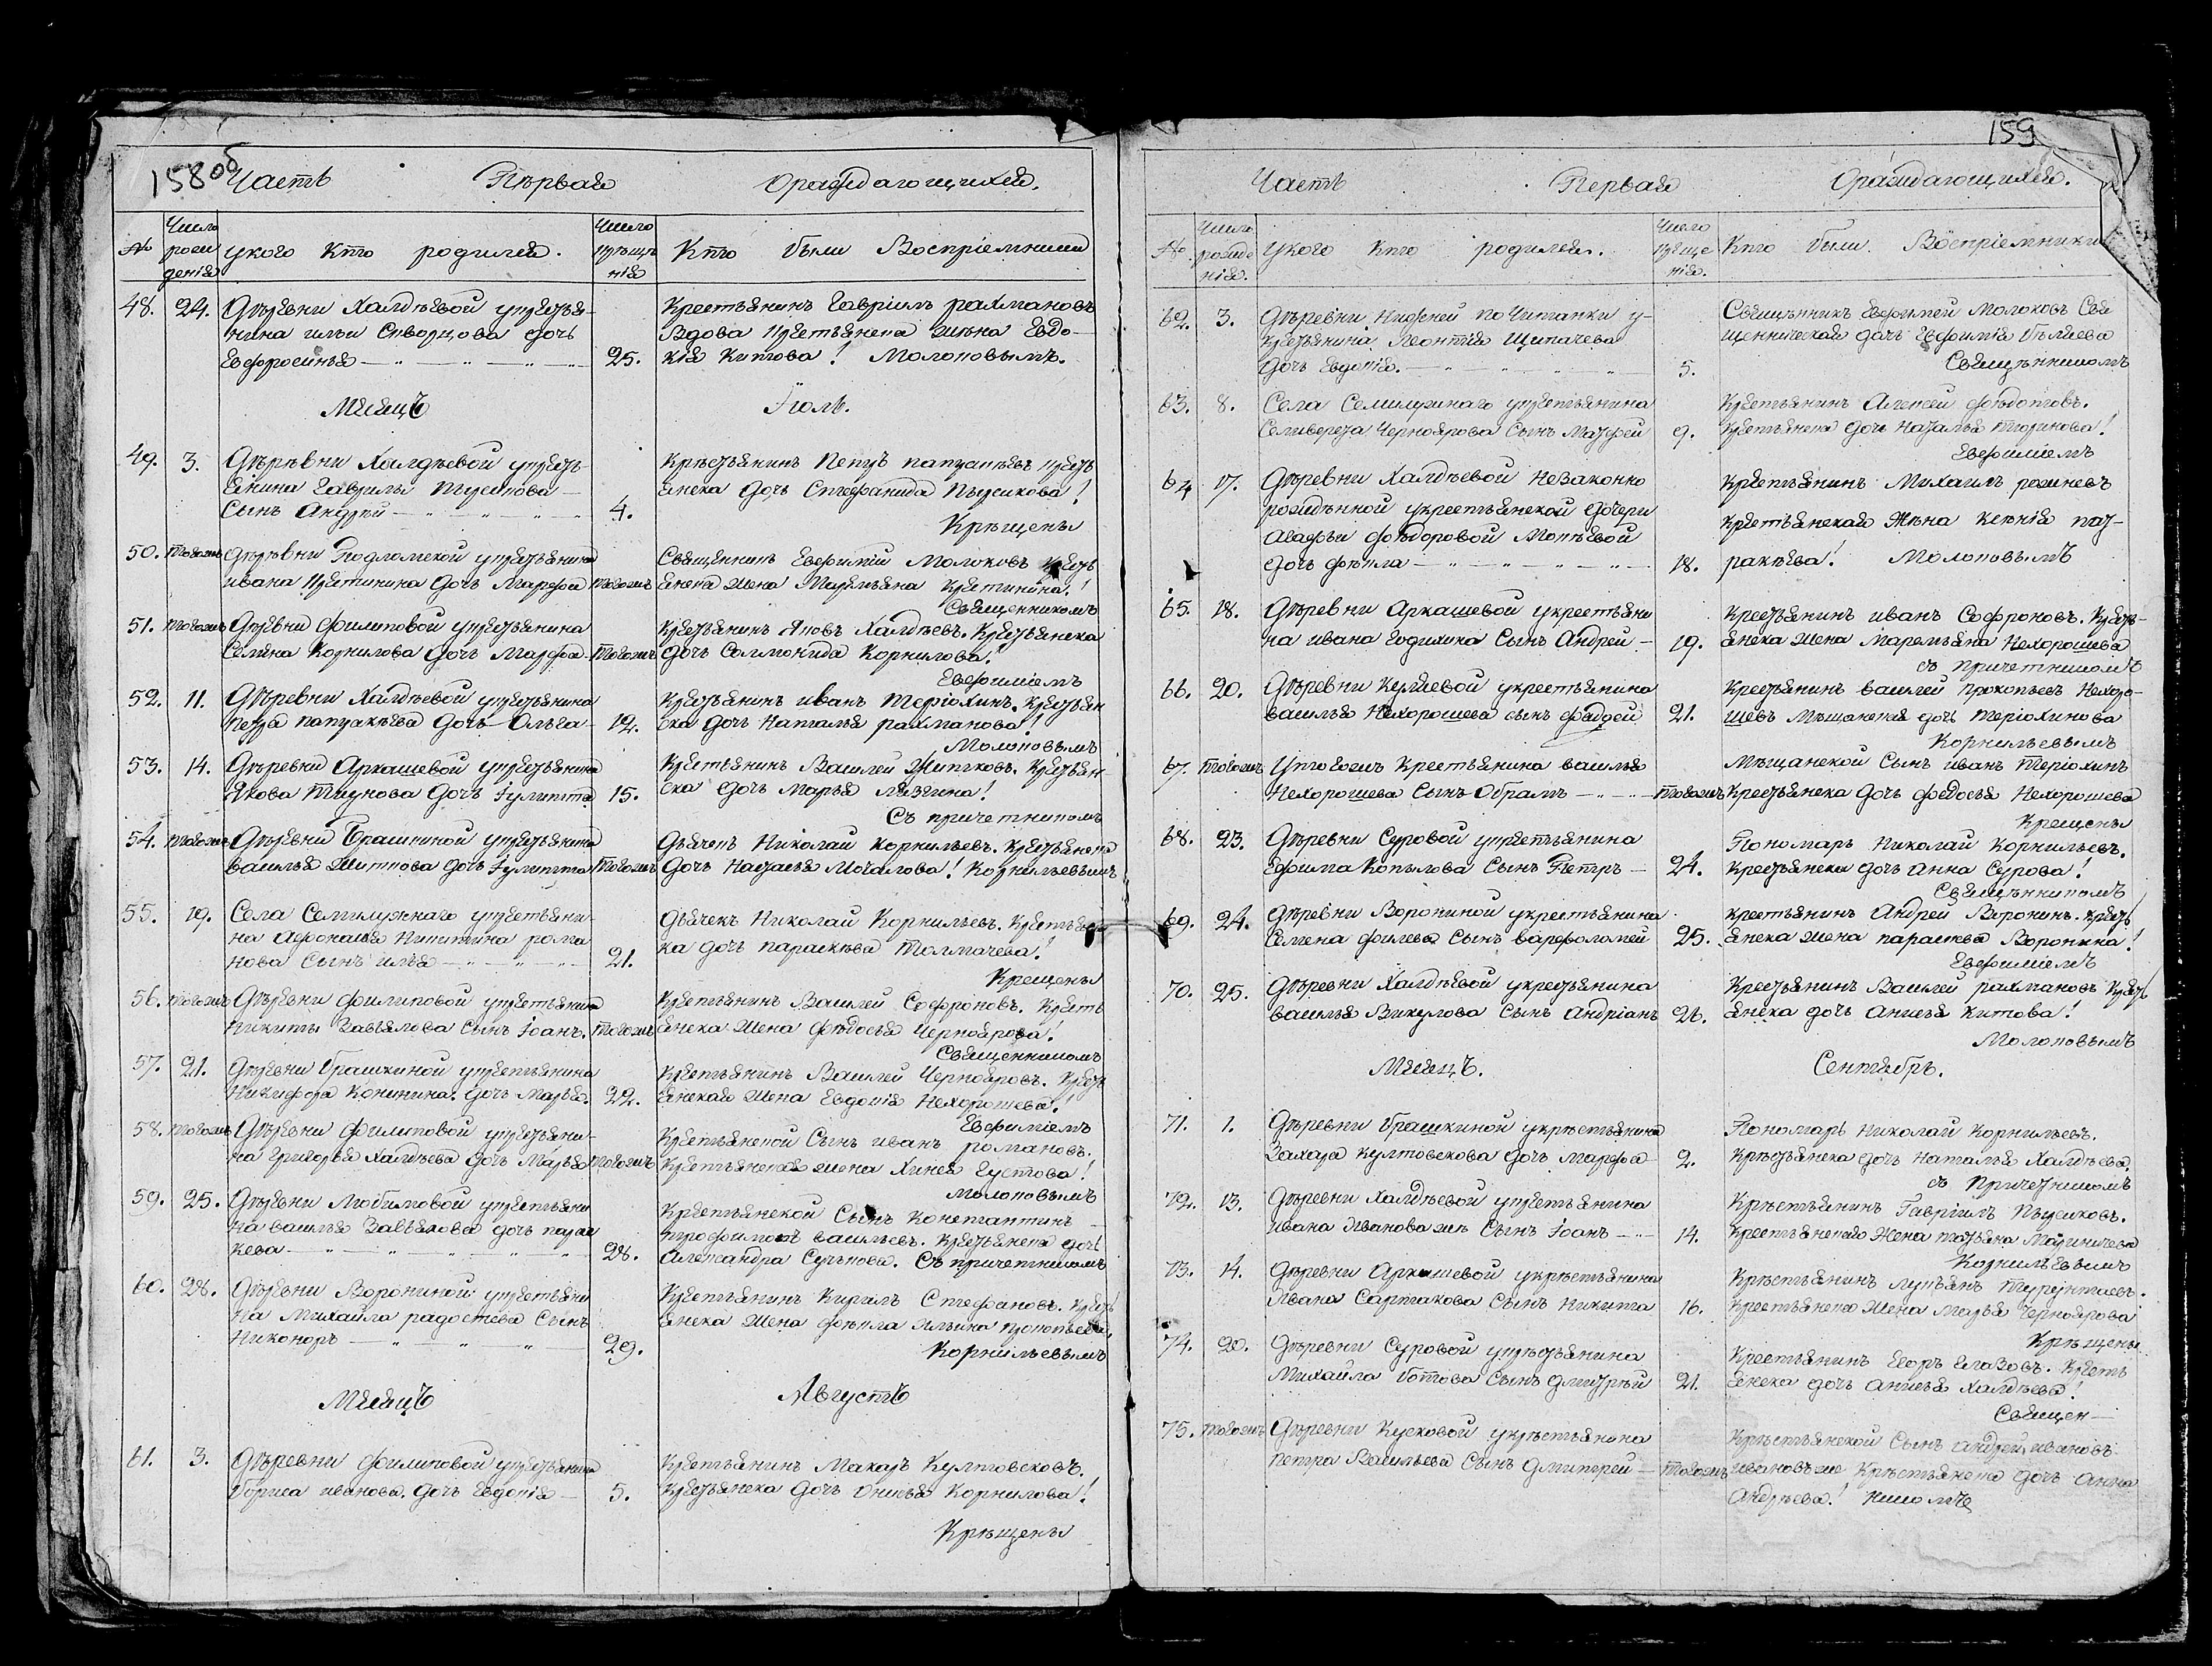 158об
Часть Первая Ораждающихся.
№ Число рожденія Укого Кто родился. Число крещенія Кто были Воспріемники
48. 24. Дѣревни Халдѣевой укрестья-
нина ильи Скворцова дочь
Евфросинья 25.
Крестьянинъ Гавріилъ рахмановъ
Вдова крестьянска жѣна Евдо-
кія Китова! Молоковымъ.
Мѣсяцъ Іюль.
49. 3. Дѣрѣвни Халдѣевой укресть-
янина Гаврилы
Сынъ Андрѣй 4.
Крѣстьянинъ Петръ крѣсть
янска дочь Стефанида
Крѣщены
50. тогожъ Дѣрѣвни Подломской укрестьянина
ивана Кретинина дочь Марфа тогожъ
Священникъ Евфимій Молоковъ кресть
янска жена Маремьяна Кретинина!
Священникомъ
51. тогожъ Дѣревни Филиповой укрестьянина
Семена Корнилова дочь Марфа тогожъ
Крестьянинъ Яковъ Халдѣевъ. Крестьянска
дочь Соломонида Корнилова!
Евфиміемъ
52. 11. Дѣревни Халдѣевой укрестьянина
петра дочь Ольга 12.
Крестьянинъ иванъ Теріохинъ. Крестьян
ска дочь Наталья рахманова!
Молоковымъ
53. 14. Дѣревни Аркашевой укрестьянина
Якова дочь Іулитта 15.
Крестьянинъ Василей Крестьян-
ска дочь Марья
Съ причетникомъ
54. тогожъ Дѣревни Брашкиной укрестьянина
василья Житкова дочь Іулитта тогожъ
Дьячекъ Николай Корнильевъ. Крестьянска
дочь Настасья Мочалова! Корнильевымъ
55. 19. Села Семилужнаго укрестьяни-
на Афонасья Никитина рома
нова Сынъ илья 21.
Дьячекъ Николай Корнильевъ. Крестьянс
ка дочь параскѣва Толмачева!
Крещены
56. тогожъ Дѣревни Филиповой укрестьянина
Никиты Завьялова Сынъ Іоанъ. тогожъ
Крестьянинъ Василей Софроновъ. Кресть
янска жена Фѣдосья Черноярова!
Священникомъ
57. 21. Дѣревни Брашкиной укрестьянина
Никифора Конинина. дочь Марья. 22.
Крестьянинъ Василей Чернояровъ. Кресть
янская жена Евдокія Нехорошева!
Евфиміемъ
58. тогожъ Дѣревни Филиповой укрестьяни-
на Григорья Халдѣева дочь Марья тогожъ
Крестьянской Сынъ иванъ романовъ.
Крестьянская жена Густова!
Молоковымъ
59. 25. Дѣревни Любимовой укрестьяни
на василья Завьялова дочь парас
кева 28.
Крестьянской Сынъ Константинъ
трофимовъ васильевъ. Крестьянска дочь
Александра Съ причетникомъ
60. 28. Дѣревни Ворониной укрестьяни
на Михайла радостева Сынъ
Никоноръ 29.
Крестьянинъ Кирилъ Стефановъ. Кресть
янска жена Фѣкла ильина
Корнильевымъ
Мѣсяцъ Августъ
61. 3. Дѣревни Филиповой укрестьянина
Бориса иванова. дочь Евдокія 5.
Крестьянинъ Макаръ Култовсковъ.
Крестьянска дочь Онисья Корнилова!
Крѣщены
159
Часть Первая Ораждающихся.
№ Число рожденія. Укого Кто родился. Число крещенія. Кто были Воспріемники
62. 3. Дѣревни Нижней почитанки у-
крестьянина Леонтія Щипачева
дочь Евдокія. 5.
Свѣщенникъ Евфимей Молоковъ Свя
щенническая дочь Евфимія Бѣляева
Священникомъ
63. 8. Села Семилужнаго укрестьянина
Селиверста Черноярова Сынъ Матфей 9.
Крестьянинъ Алексей Федотовъ.
Крестьянска дочь Наталья Тюринова!
Евфиміемъ
64 17. Дѣревни Халдѣевой Незаконно
рожденной укрестьянской дочери
Агафьи Фѣдоровой
дочь Фѣкла 18.
Крестьянинъ Михаилъ
Крестьянская Жѣна Ксѣнія пат-
ракѣева! Молоковымъ
65. 18. Дѣревни Аркашевой укрестьяни
на ивана Сынъ Андрей 19.
Крестьянинъ иванъ Софроновъ. Кресть-
янска жена Маремьяна Нехорошева
съ причетникомъ
66. 20. Дѣревни Кусковой укрестьянина
василья Нехорошева сынъ Фаддей 21.
Крестьянинъ василей прокопьевъ Нехоро-
шевъ Мѣщанская дочь Теріохинова
Корнильевымъ
67. тогожъ Уптогожъ Крестьянина василья
Нехорошева Сынъ Абрамъ тогожъ
Мѣщанской Сынъ иванъ Теріохинъ
Крестьянска дочь Федосья Нехорошева
Крещены
68. 23. Дѣревни Суровой укрестьянина
Ефима Копылова Сынъ Петръ 24.
Пономарь Николай Корнильевъ.
Крестьянска дочь Анна Сурова!
Священникомъ
69. 24. Дѣревни Ворониной укрестьянина
Семена Филева Сынъ Варфоломей 25.
крестьянинъ Андрей Воронинъ. кресть
янска жена параскева Воронина!
Евфиміемъ
70. 25. Дѣревни Халдѣевой укрестьянина
василья Викулова Сынъ Андріанъ 26.
Крестьянинъ Василей рахмановъ Кресть
янска дочь Анисья Китова!
Молоковымъ
Мѣсяцъ. Сентябрь.
71. 1. Дѣревни Брашкиной укрестьянина
Захара Култовскова дочь Марфа 2.
Пономарь Николай Корнильевъ.
Крѣстьянска дочь Наталья Халдѣева.
съ Причетникомъ
72. 13. Дѣревни Халдѣевой укрестьянина
ивана Ивановажъ Сынъ Іоанъ 14.
Крѣстьянинъ Гавріилъ
Крестьянская Жена татьяна
Корнильевымъ
73. 14. Дѣревни Аркашевой укрѣстьянина
Ивана Сартакова Сынъ Никита 16.
Крѣстьянинъ лукьянъ
Крестьянска жена Марья Черноярова
Крѣщены
74. 20. Дѣревни Суровой укрестьянина
Михайла Ботова Сынъ Дмитрѣй 21.
Крестьянинъ Егоръ Глазовъ. Кресть
янска дочь Анисья Халдѣева!
Священ
75. тогожъ Дѣревни Кусковой укрѣстьянина
петра Васильева Сынъ Дмитрей тогожъ
Крѣстьянской Сынъ андрей ивановъ
ивановъже Крѣстьянска дочь Анна
Андрѣева! никомъ